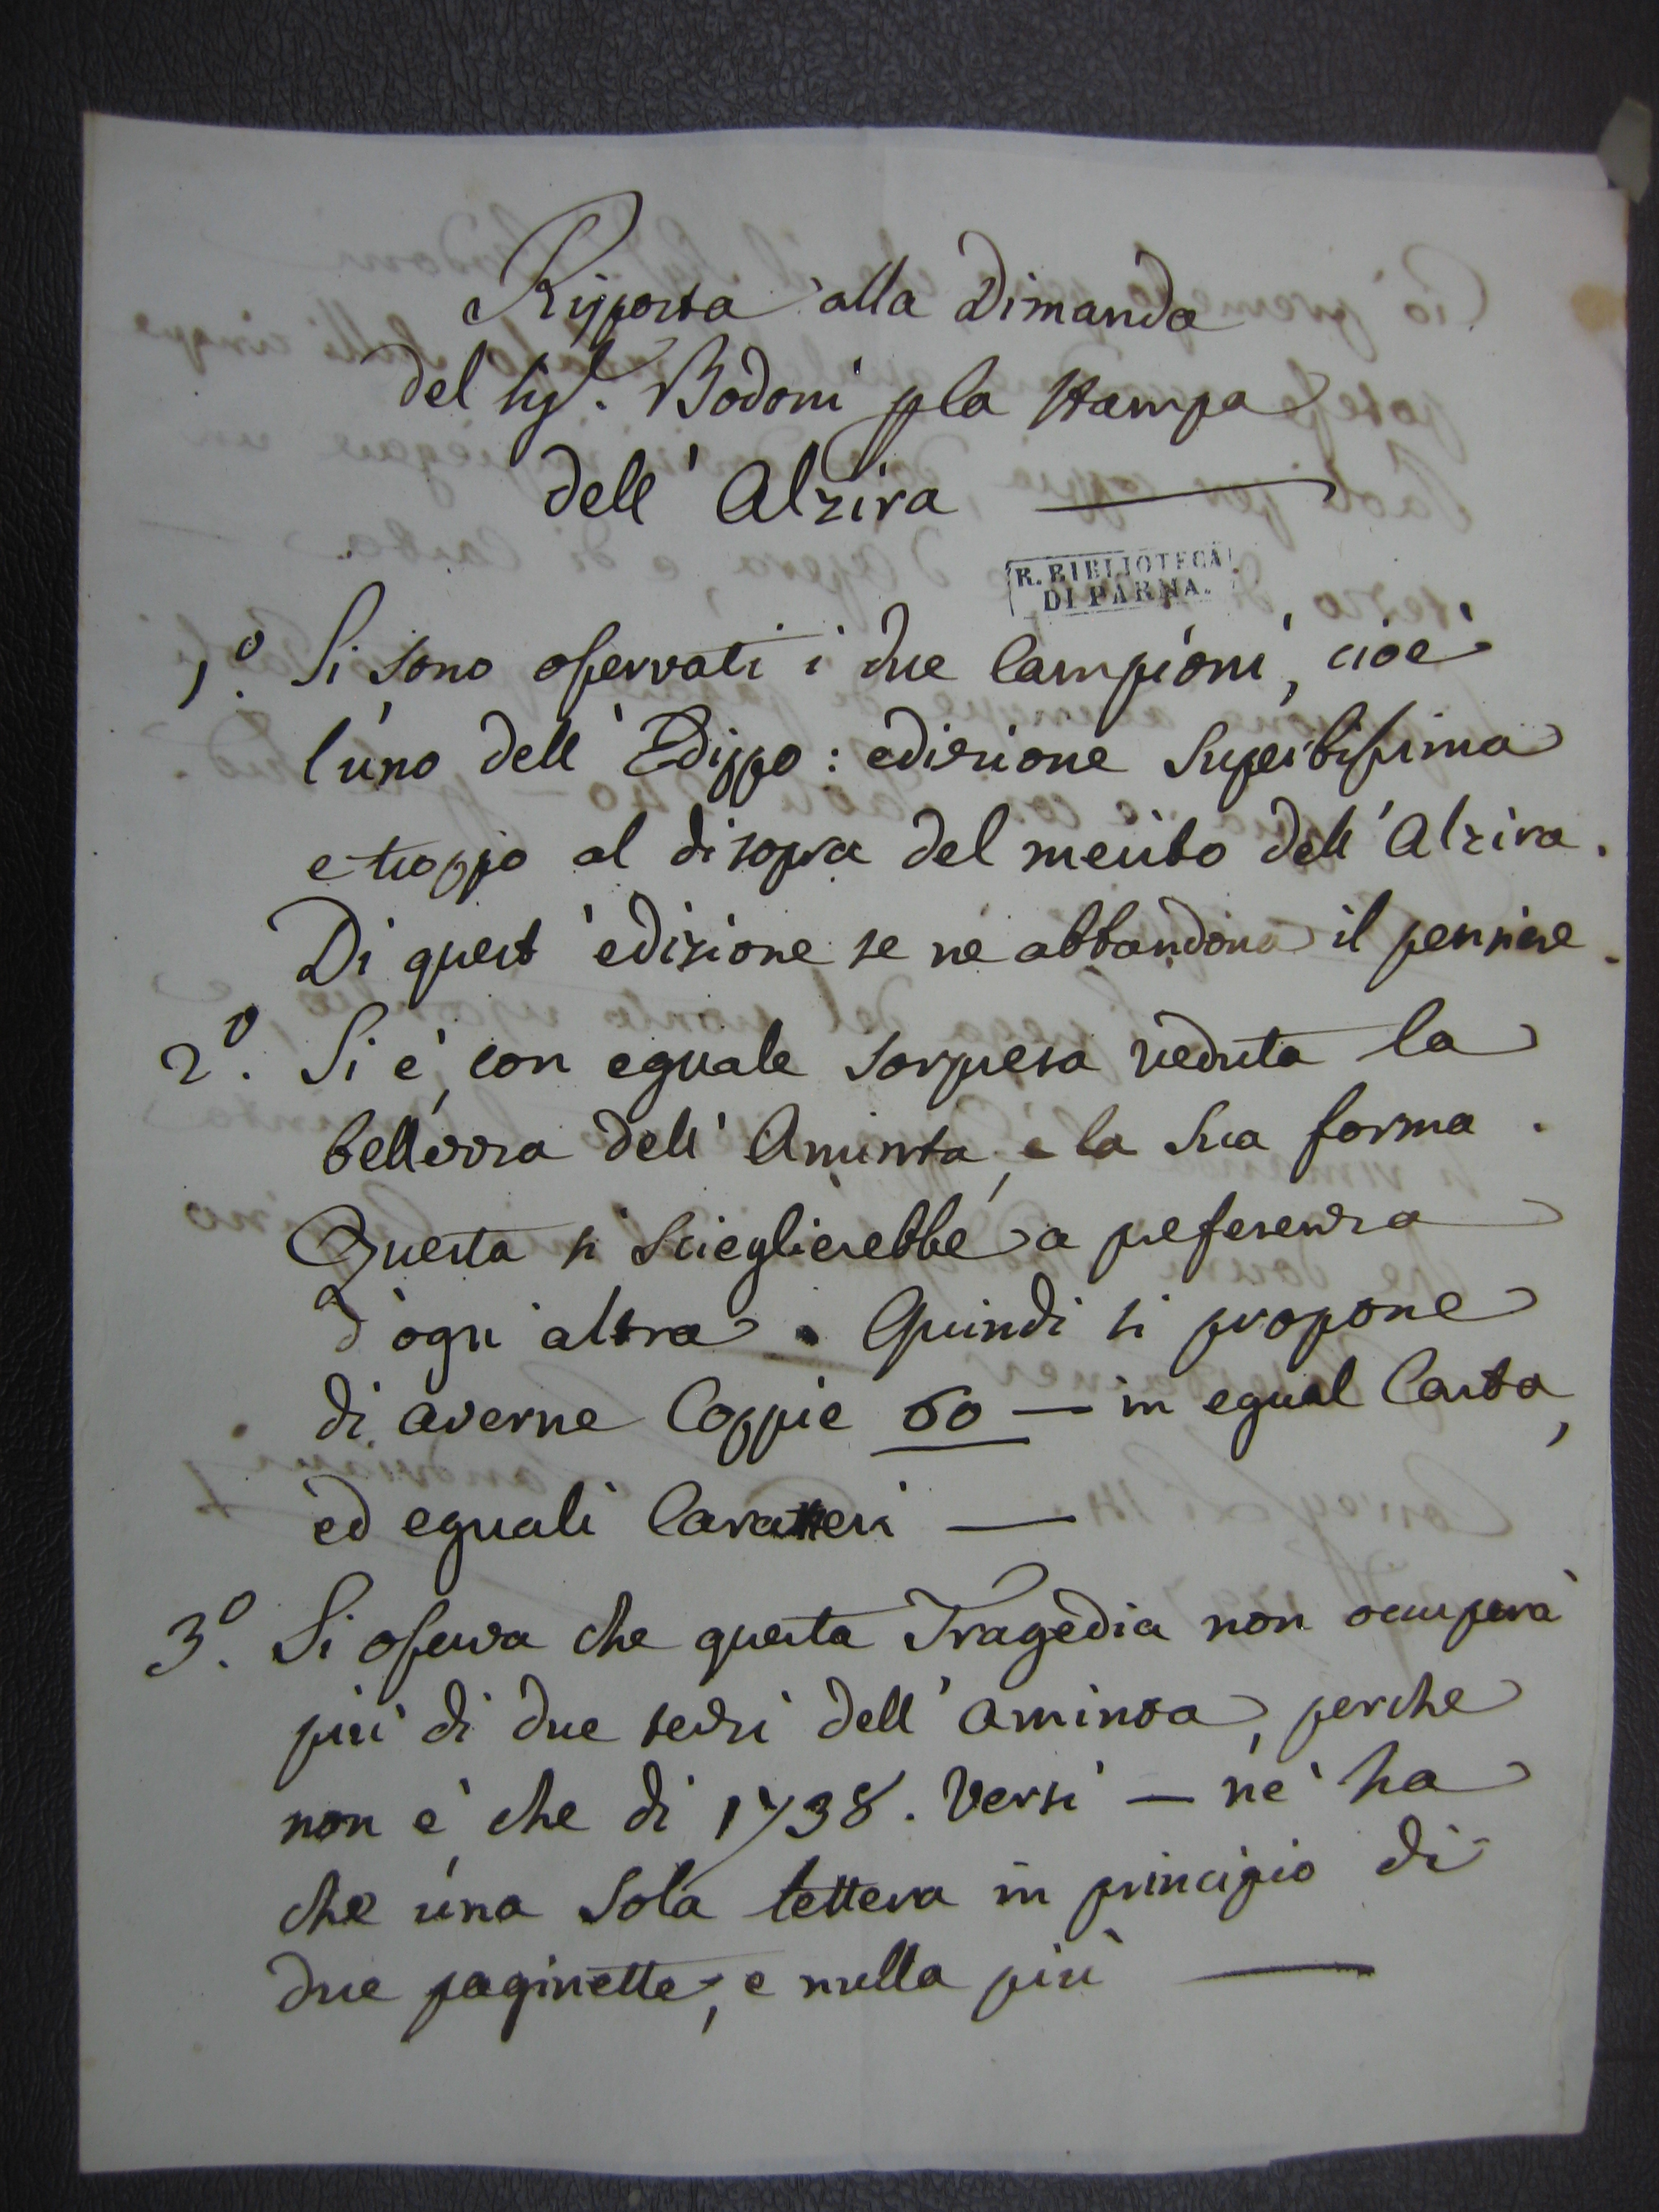 Risposta alla Dimanda
del Sigr. Bodoni pla Stampa
dell' Alzira —
R. BIBLIOTECA
DI PARMA.
1.° Si sono osservati i due Campioni, cioè
l'uno dell' Edippo: edizione Superbissima
e troppo al di sopra del merito dell' Alzira.
Di quest' edizione se ne abbandona il pensiere.
2.° Si è con eguale sorpresa veduta la
bellezza dell' Aminta, e la sua forma.
Questa si scieglierebbe a preferenza
d'ogni altra. Quindi si propone
di averne Coppie 60 — in egual Carta,
ed eguali Caratteri —
3.° Si osserva che questa Tragedia non occuperà
più di due terzi dell' Aminta, perche
non è che di 1738. Versi — nè ha
che una sola lettera in principio di
due paginette, e nulla più —